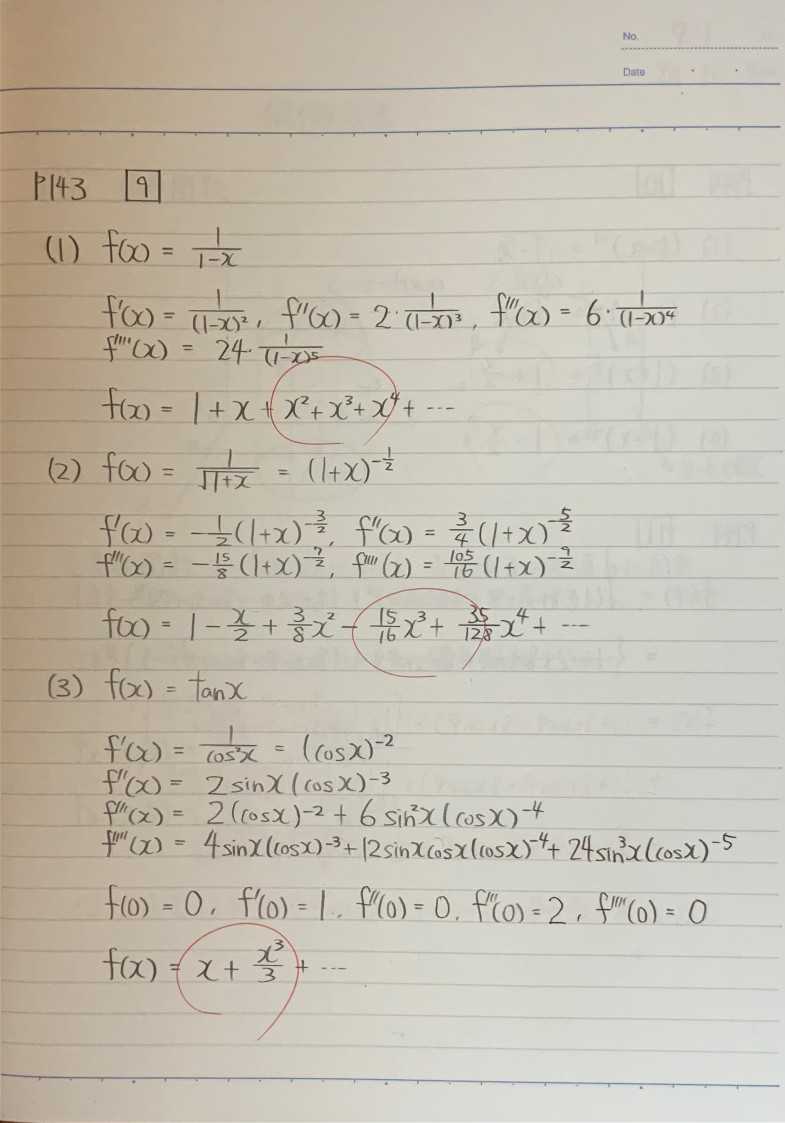 No.
Date
P143 9
(1) f(x) = 1/(1-x)
f'(x) = 1/(1-x)², f''(x) = 2·1/(1-x)³, f'''(x) = 6·1/(1-x)⁴
f''''(x) = 24·1/(1-x)⁵
f(x) = 1 + x + x² + x³ + x⁴ + ···
(2) f(x) = 1/√(1+x) = (1+x)^(-1/2)
f'(x) = -1/2(1+x)^(-3/2), f''(x) = 3/4(1+x)^(-5/2)
f'''(x) = -15/8(1+x)^(-7/2), f''''(x) = 105/16(1+x)^(-9/2)
f(x) = 1 - x/2 + 3/8x² - 15/16x³ + 35/128x⁴ + ···
(3) f(x) = tanx
f'(x) = 1/cos²x = (cosx)⁻²
f''(x) = 2sinx(cosx)⁻³
f'''(x) = 2(cosx)⁻² + 6sin²x(cosx)⁻⁴
f''''(x) = 4sinx(cosx)⁻³ + 12sinxcosx(cosx)⁻⁴ + 24sin³x(cosx)⁻⁵
f(0) = 0, f'(0) = 1, f''(0) = 0, f'''(0) = 2, f''''(0) = 0
f(x) = x + x³/3 + ···